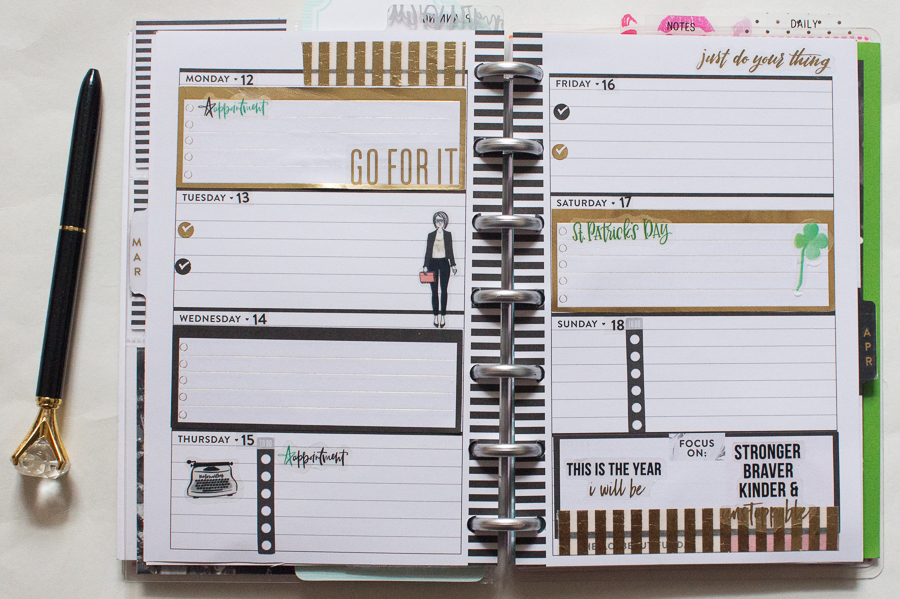 PLANNING
NOTES
DAILY
just do your thing
MONDAY • 12
Appointment
GO FOR IT
TUESDAY • 13
MAR
WEDNESDAY • 14
THURSDAY • 15
Appointment
FRIDAY • 16
SATURDAY • 17
St. Patrick's Day
SUNDAY • 18
APR
FOCUS
ON:
THIS IS THE YEAR
i will be
STRONGER
BRAVER
KINDER &
unstoppable